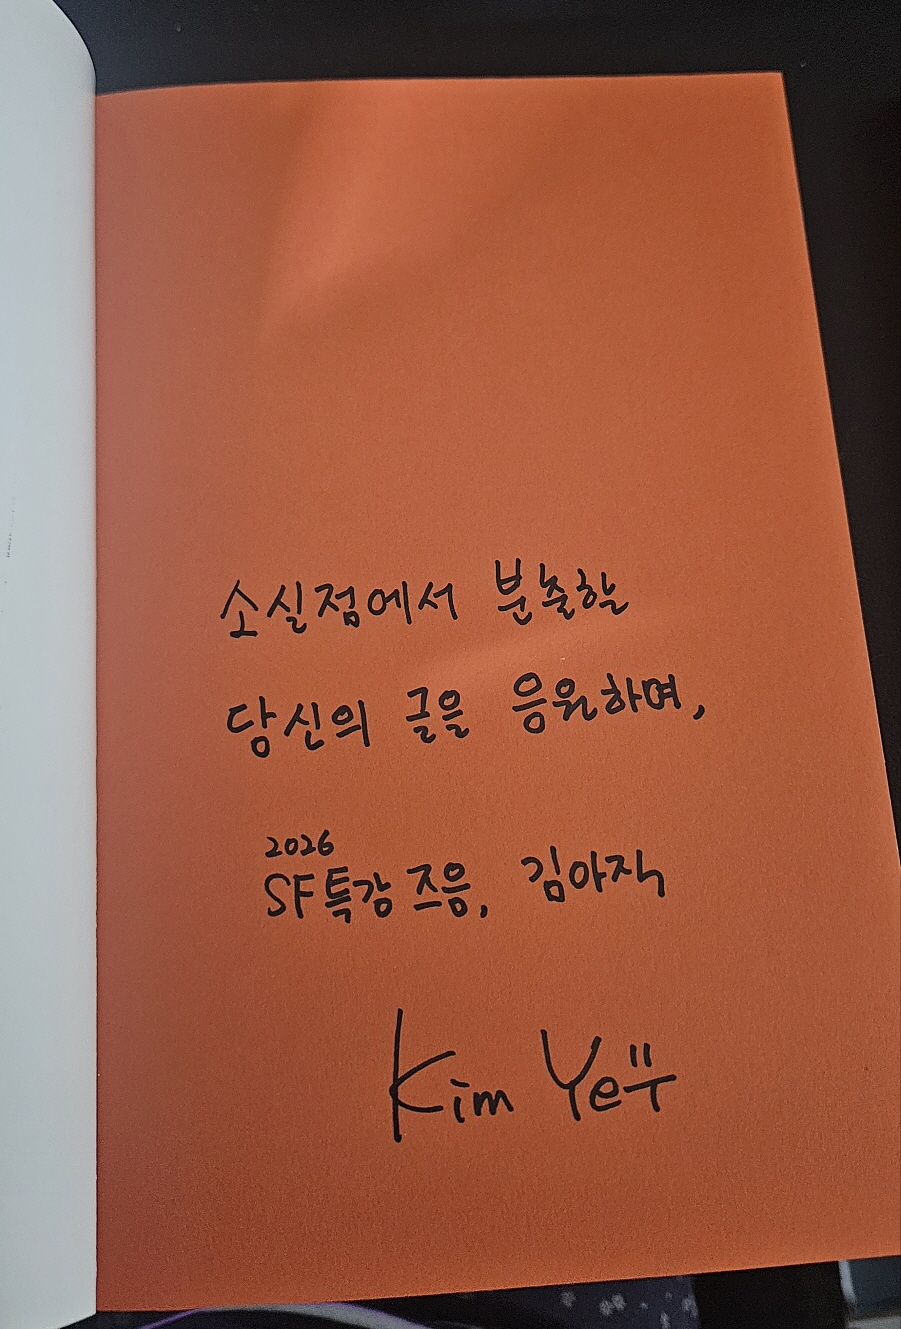 소실점에서 분출할
당신의 글을 응원하며,
2026
SF특강 즈음, 김아직
Kim Ye